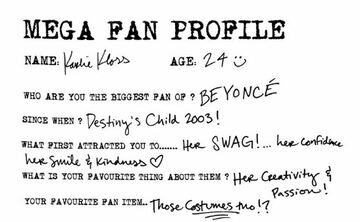 MEGA FAN PROFILE
NAME: Karlie Kloss AGE: 24
WHO ARE YOU THE BIGGEST FAN OF? BEYONCÉ
SINCE WHEN? Destiny's Child 2003!
WHAT FIRST ATTRACTED YOU TO...... Her SWAG!... her confidence
her smile & kindness ♡
WHAT IS YOUR FAVOURITE THING ABOUT THEM? Her Creativity &
Passion!
YOUR FAVOURITE FAN ITEM... Those Costumes tho!?